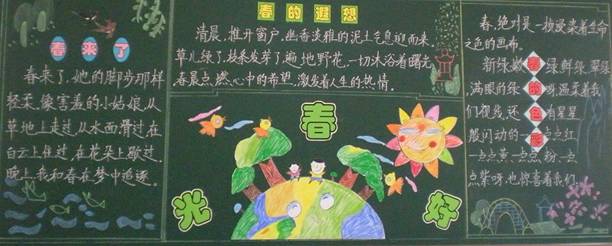 春来了
春来了,她的脚步那样
轻柔,像害羞的小姑娘,从
草地上走过,从水面滑过,在
白云上住过,在花朵上歇过,
晚上我和春在梦中追逐。
春的遐想
清晨,推开窗户,幽香淡雅的泥土气息迎面而来,
草儿绿了,枝条发芽了,遍地野花,一切沐浴着曙光,
春晨点燃心中的希望,激发着人生的热情。
春
光
好
春,绝对是一枚渲染着生命
之色的画布。
新绿,嫩绿,鲜绿,翠绿,
满眼的绿
们俊览,还有星星
般闪动的一点点红
一点点黄,一点点粉,一点
点紫呀,也惊喜着我们